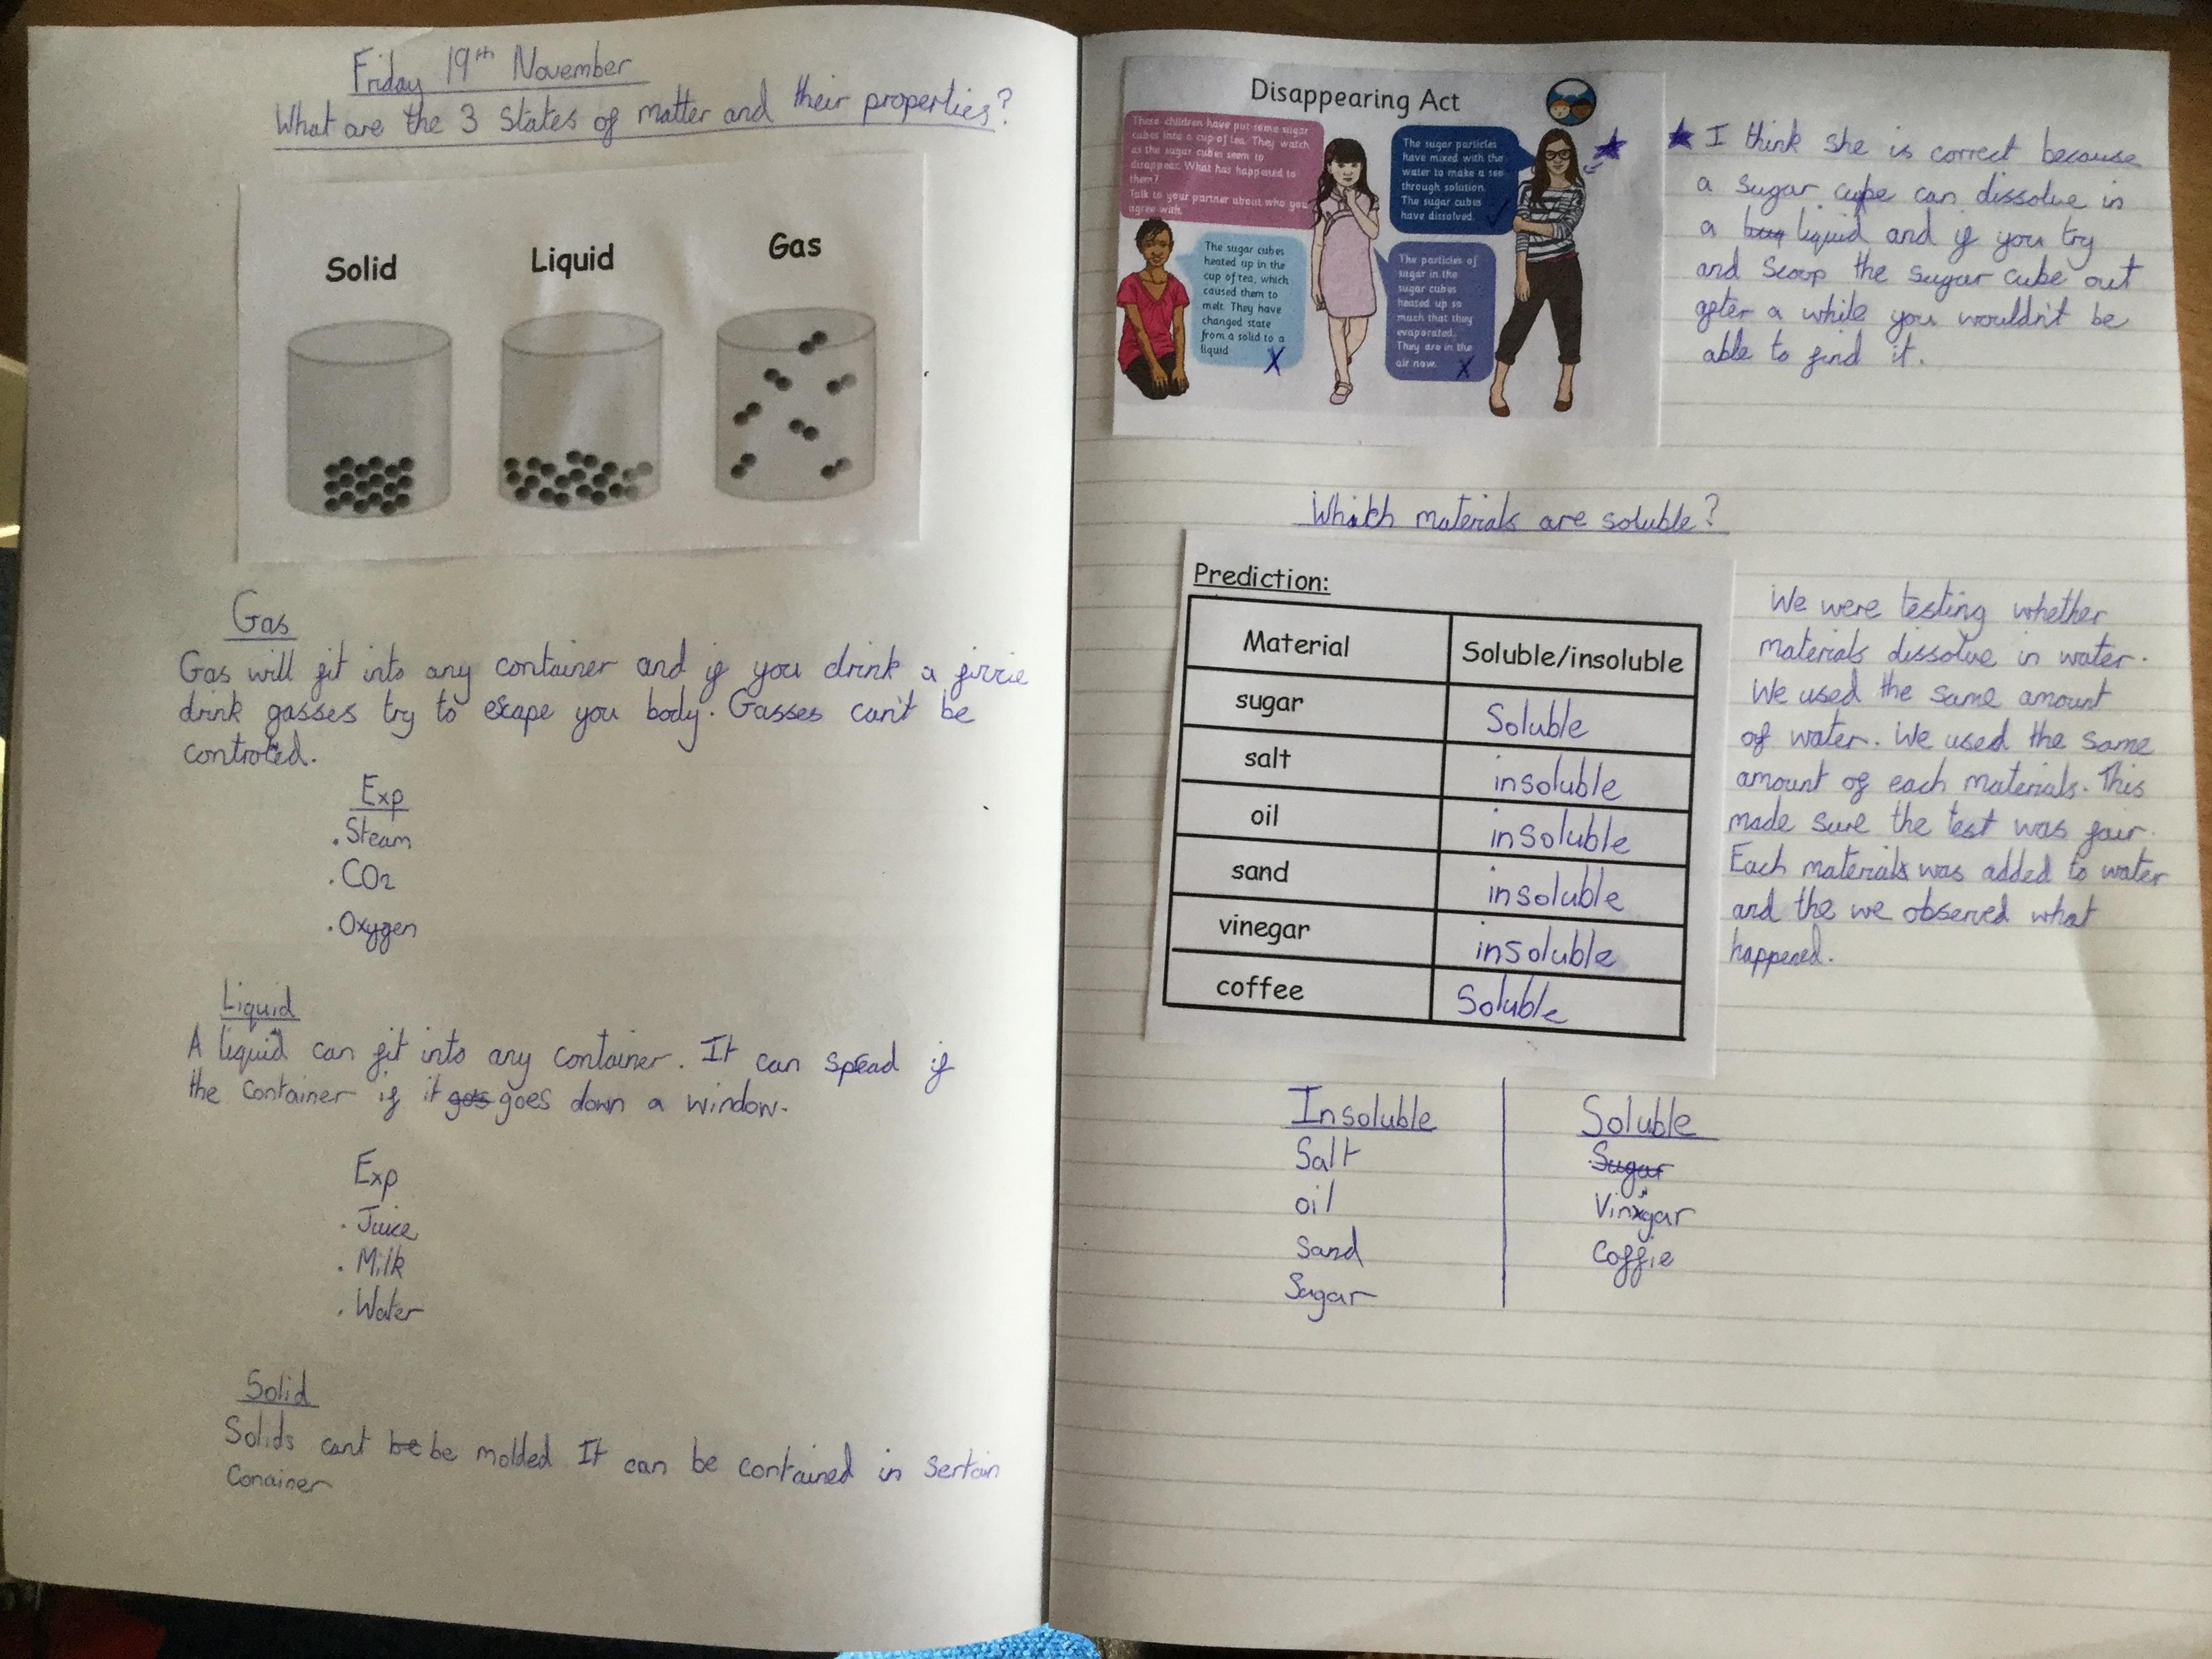 Friday 19th November
What are the 3 States of matter and their properties?
Solid
Liquid
Gas
Gas
Gas will fit into any container and if you drink a fizzie
drink gasses try to escape you body. Gasses can't be
controled.
Exp
. Steam
. CO2
. Oxygen
Liquid
A liquid can fit into any container. It can spread if
the container if it gos goes down a window.
Exp
. Juice
. Milk
. Water
Solid
Solids cant be be molded It can be contained in sertain
Conainer
Disappearing Act
These children have put some sugar
cubes into a cup of tea. They watch
as the sugar cubes seem to
disappear. What has happened to
them?
Talk to your partner about who you
agree with.
The sugar particles
have mixed with the
water to make a see
through solution.
The sugar cubes
have dissolved.
The sugar cubes
heated up in the
cup of tea, which
caused them to
melt. They have
changed state
from a solid to a
liquid
The particles of
sugar in the
sugar cubes
heated up so
much that they
evaporated.
They are in the
air now.
I think she is correct because
a sugar cube can dissolve in
a liquid and if you try
and scoop the sugar cube out
after a while you wouldn't be
able to find it.
Which materials are soluble?
Prediction:
Material Soluble/insoluble
sugar Soluble
salt insoluble
oil insoluble
sand insoluble
vinegar insoluble
coffee Soluble
We were testing whether
materials dissolve in water.
We used the same amount
of water. We used the same
amount of each materials. This
made sure the test was fair.
Each materials was added to water
and the we observed what
happened.
Insoluble Soluble
Salt Sugar
oil Vinegar
Sand Coffie
Sugar